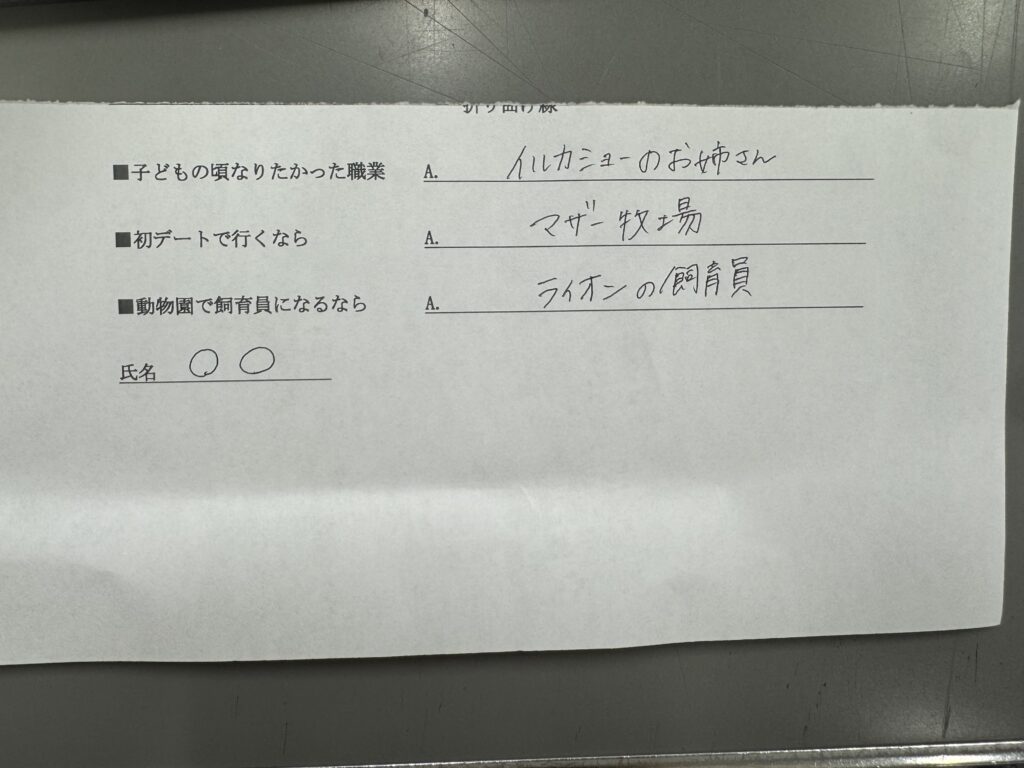 折り曲げ線
■子どもの頃なりたかった職業 A. イルカショーのお姉さん
■初デートで行くなら A. マザー牧場
■動物園で飼育員になるなら A. ライオンの飼育員
氏名 〇〇